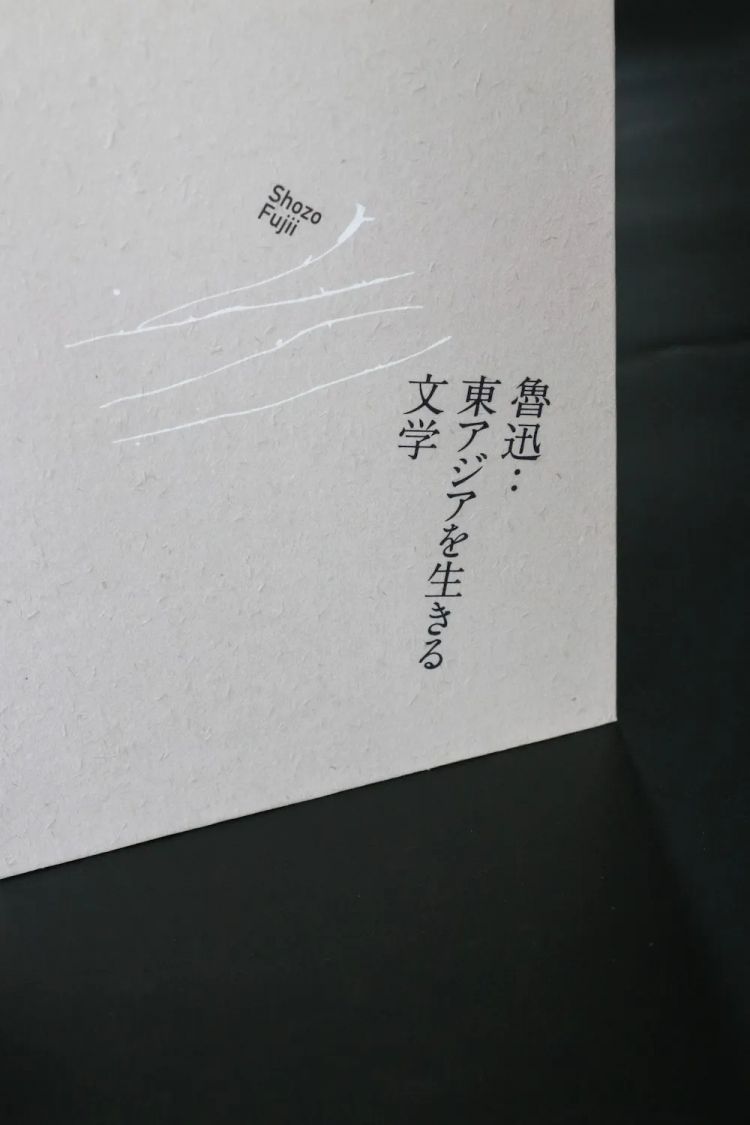 Shozo
Fujii
魯迅：
東アジアを生きる
文学